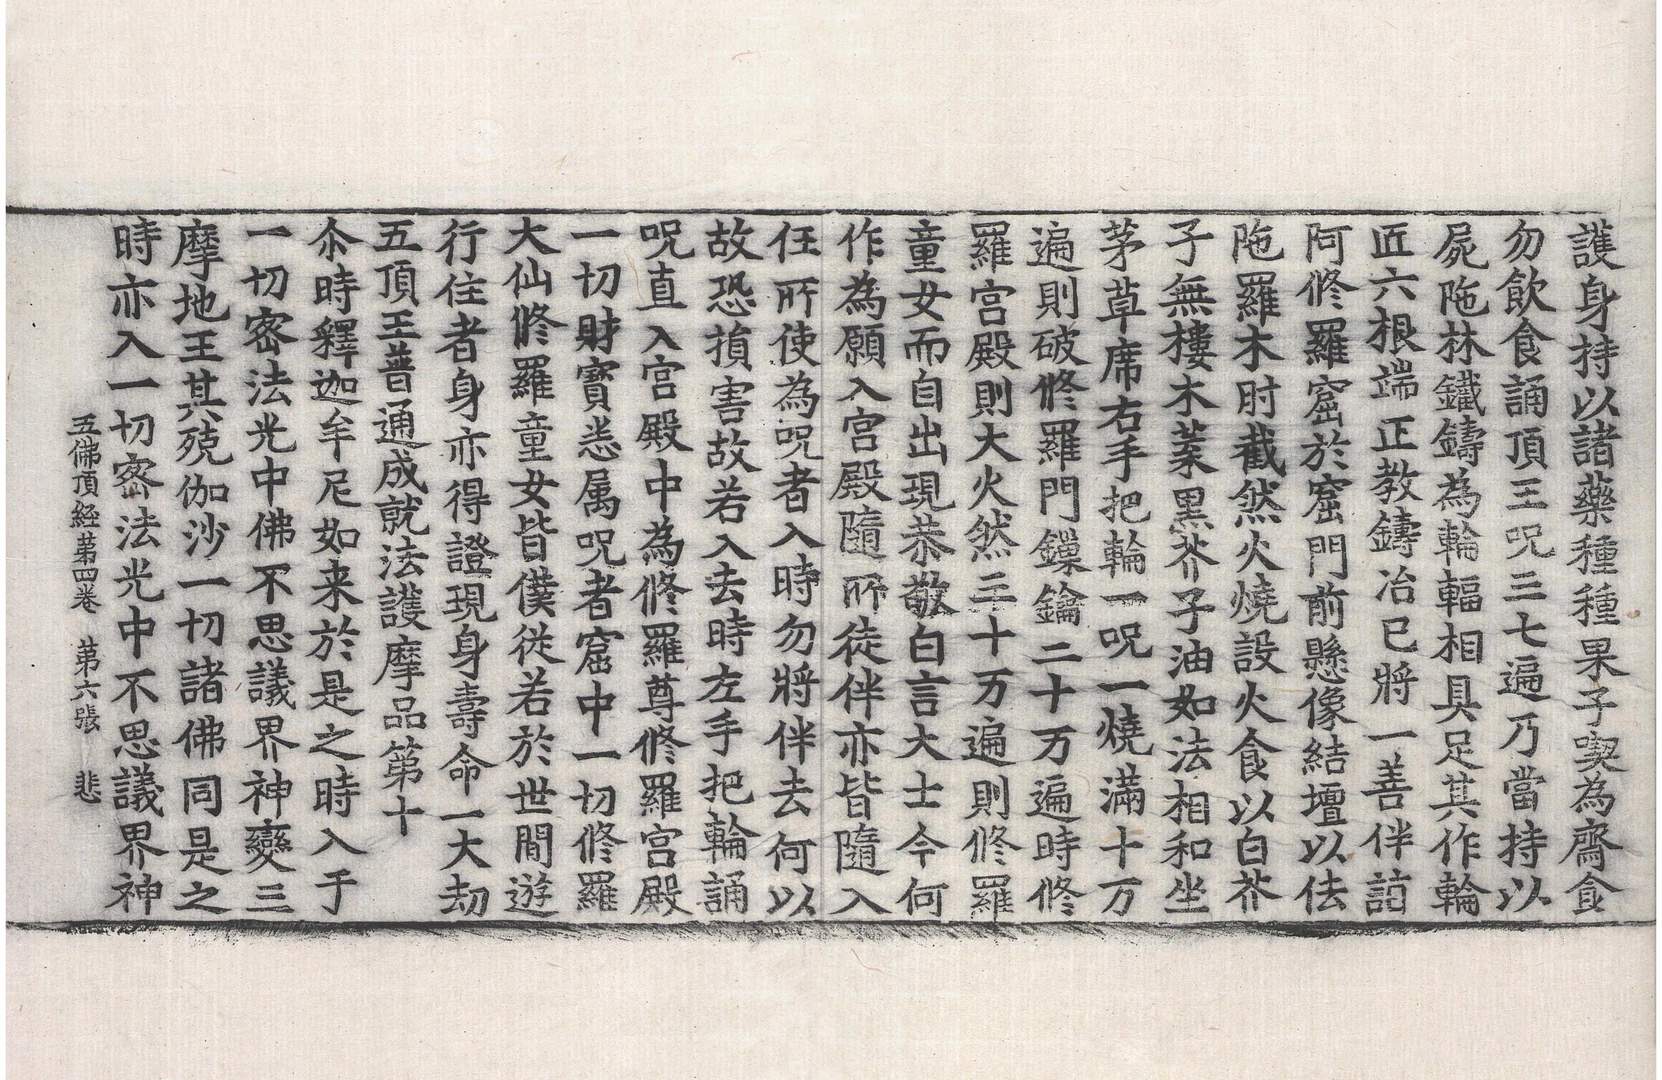 護身持以諸藥種種果子喫為齋食
勿飲食誦頂王呪三七遍乃當持以
屍陁林鐵鑄為輪輻相具足其作輪
匠六根端正教鑄冶已將一善伴詣
阿修羅窟於窟門前懸像結壇以佉
陁羅木肘截然火燒設火食以白芥
子無樓木蓁黑芥子油如法相和坐
茅草席右手把輪一呪一燒滿十万
遍則破修羅門鏁鑰二十万遍時修
羅宮殿則大火然三十万遍則修羅
童女而自出現恭敬白言大士今何
作為願入宮殿隨所徒伴亦皆隨入
任所使為呪者入時勿將伴去何以
故恐損害故若入去時左手把輪誦
呪直入宮殿中為修羅尊修羅宮殿
一切財寶悉属呪者窟中一切修羅
大仙修羅童女皆僕從若於世間遊
行住者身亦得證現身壽命一大劫
五頂王普通成就法護摩品第十
尒時釋迦牟尼如来於是之時入于
一切密法光中佛不思議界神變三
摩地王其殑伽沙一切諸佛同是之
時亦入一切密法光中不思議界神
五佛頂經第四卷 第六張 悲